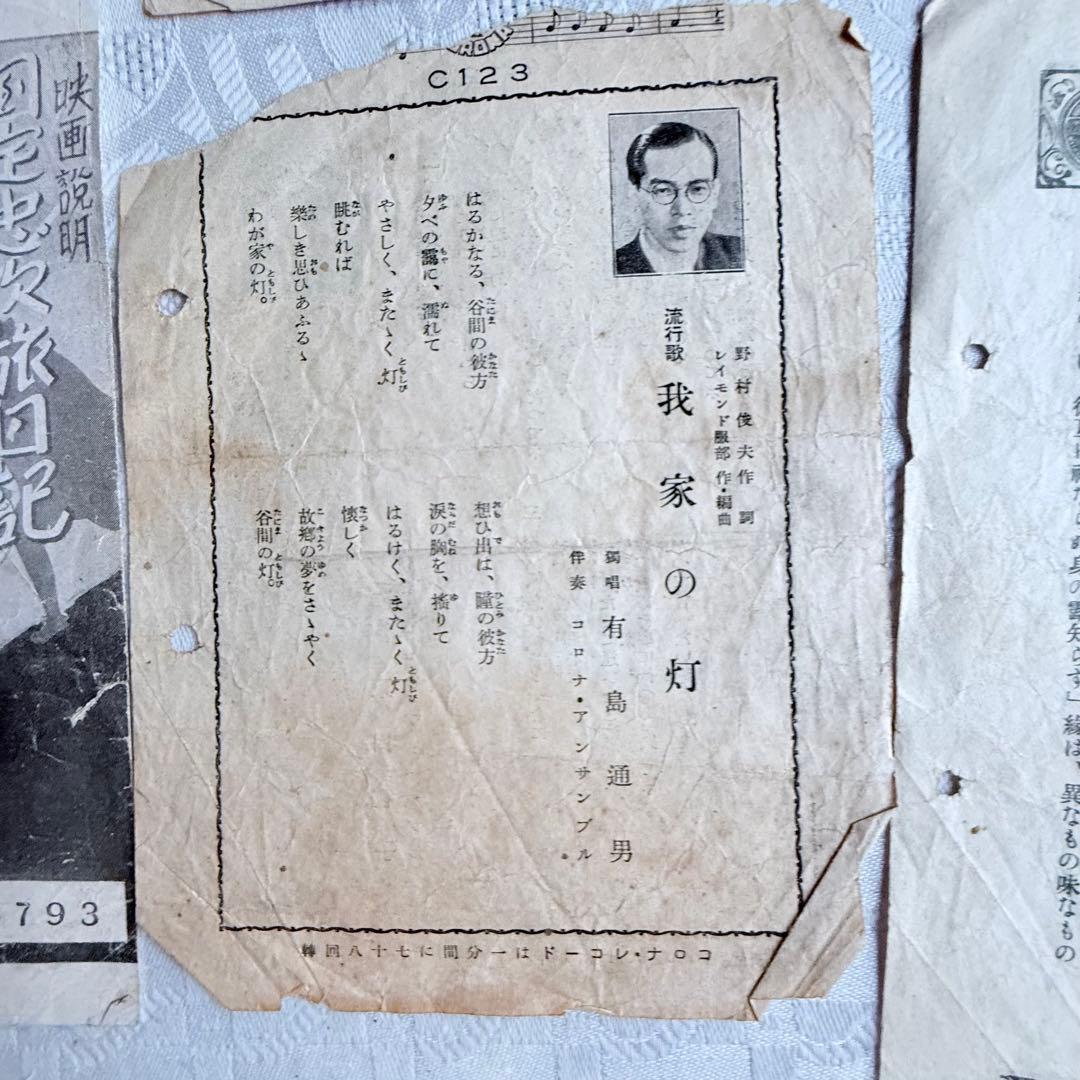 C123
流行歌 我家の灯
野村俊夫作詞
レイモンド服部作・編曲
獨唱 有島通男
伴奏 コロナ・アンサンブル
はるかなる、谷間の彼方
夕べの靄に、濡れて
やさしく、またゝく灯
眺むれば
樂しき思ひあふるゝ
わが家の灯。
想ひ出は、瞳の彼方
涙の胸を、搖りて
はるけく、またゝく灯
懐しく
故郷の夢をさゝやく
谷間の灯。
コロナ・レコードは一分間に七十八回轉
映画説明
国定忠次旅日記
793
縁は、異なもの味なもの